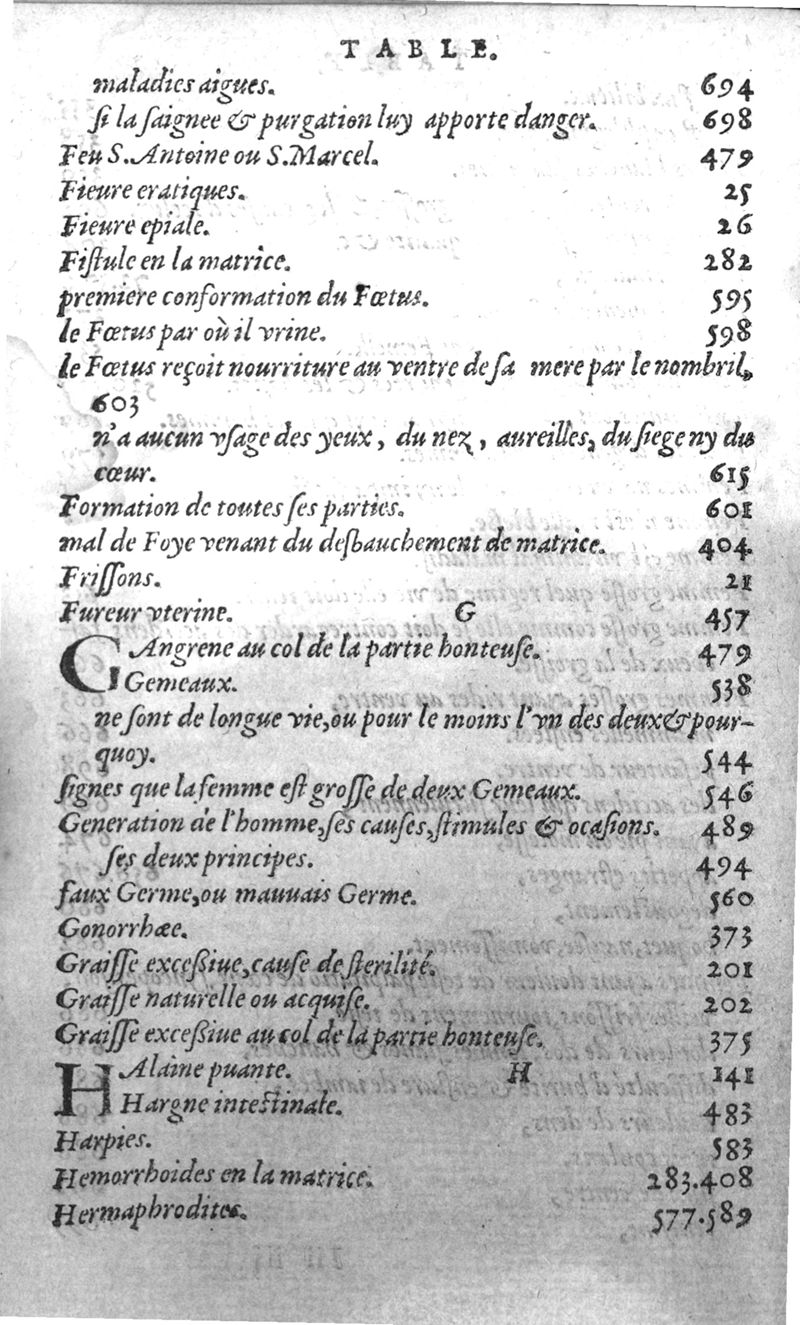 TABLE.
maladies aigues. 694
ſi la ſaignee & purgation luy apporte danger. 698
Feu S. Antoine ou S. Marcel. 479
Fieure eratiques. 25
Fieure epiale. 26
Fiſtule en la matrice. 282
premiere conformation du Fœtus. 595
le Fœtus par où il vrine. 598
le Fœtus reçoit nourriture au ventre de ſa mere par le nombril,
603
n'a aucun vſage des yeux, du nez, aureilles, du ſiege ny du
cœur. 615
Formation de toutes ſes parties. 601
mal de Foye venant du deſbauchement de matrice. 404.
Friſſons. 21
Fureur vterine. 457
G
GAngrene au col de la partie honteuſe. 479
Gemeaux. 538
ne ſont de longue vie, ou pour le moins l'vn des deux & pour-
quoy. 544
ſignes que la femme eſt groſſe de deux Gemeaux. 546
Generation de l'homme, ſes cauſes, ſtimules & ocaſions. 489
ſes deux principes. 494
faux Germe, ou mauuais Germe. 560
Gonorrhæe. 373
Graiſſe exceßiue, cauſe de ſterilité. 201
Graiſſe naturelle ou acquiſe. 202
Graiſſe exceßiue au col de la partie honteuſe. 375
H
HAlaine puante. 141
Hargne inteſtinale. 483
Harpies. 583
Hemorrhoides en la matrice. 283.408
Hermaphrodites. 577.589